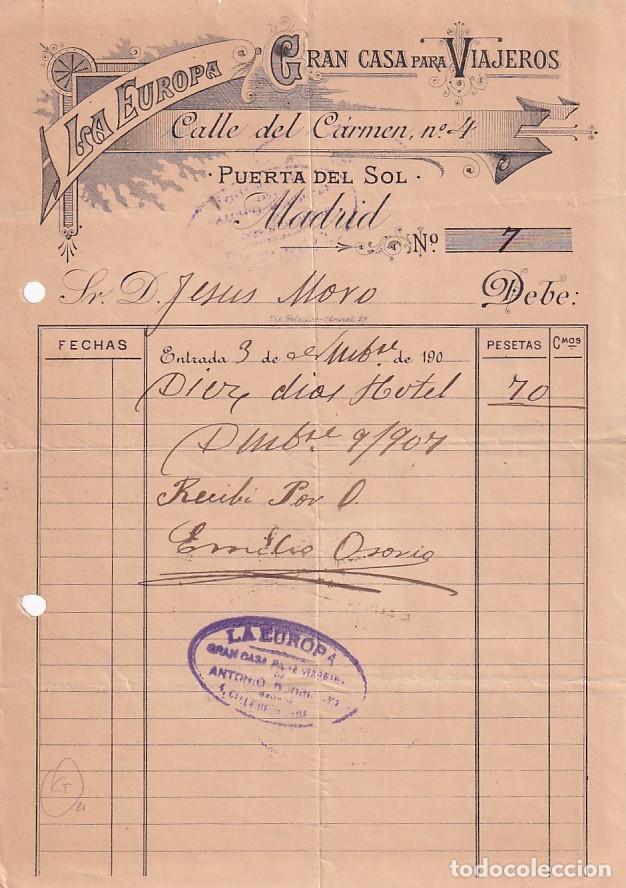 LA EUROPA
GRAN CASA PARA VIAJEROS
Calle del Cármen, nº 4
· PUERTA DEL SOL ·
Madrid
Nº 7
Sr. D. Jesus Moro Debe:
FECHAS
Entrada 3 de de 190
PESETAS
Cmos
Diez dias Hotel 70
9/907
Recibi Por O.
Emilio Osorio
LA EUROPA
GRAN CASA PARA VIAJEROS
DE
ANTONIO
4, CALLE DEL
todocoleccion
todocoleccion.net